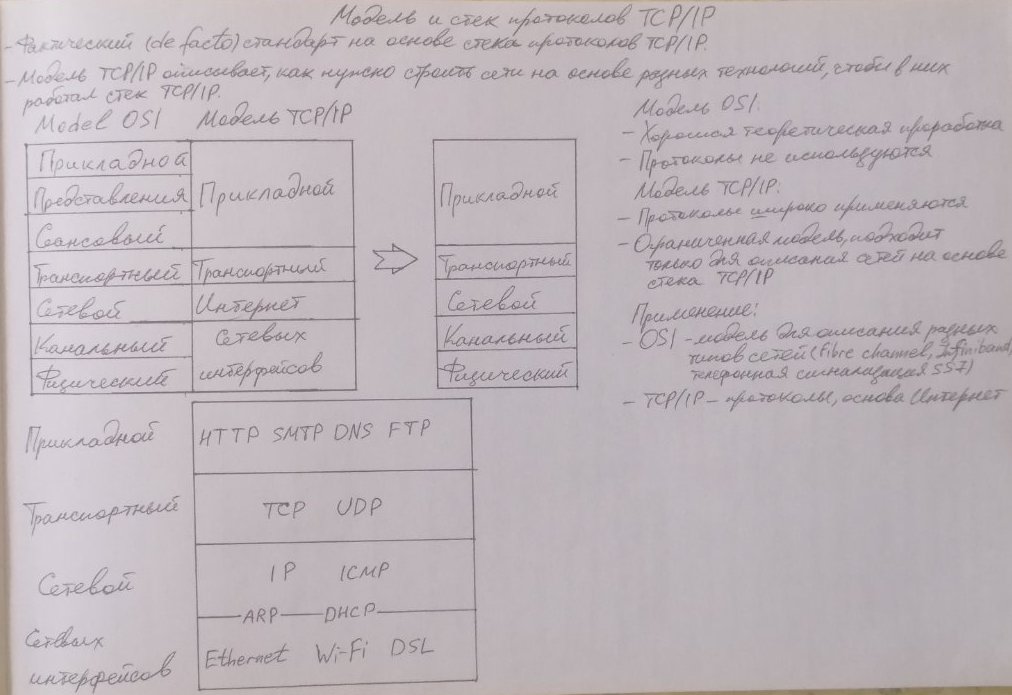 Модель и стек протоколов TCP/IP
- Фактический (de facto) стандарт на основе стека протоколов TCP/IP.
- Модель TCP/IP описывает, как нужно строить сети на основе разных технологий, чтобы в них
работал стек TCP/IP.
Model OSI Модель TCP/IP
Прикладной
Представления
Сеансовый
Транспортный
Сетевой
Канальный
Физический
Прикладной
Транспортный
Интернет
Сетевых
интерфейсов
Прикладной
Транспортный
Сетевой
Канальный
Физический
Модель OSI:
- Хорошая теоретическая проработка
- Протоколы не используются
Модель TCP/IP:
- Протоколы широко применяются
- Ограниченная модель, подходит
только для описания сетей на основе
стека TCP/IP
Применение:
- OSI - модель для описания разных
типов сетей (Fibre channel, Infiniband,
телефонная сигнализация SS7)
- TCP/IP - протоколы, основа Интернет
Прикладной HTTP SMTP DNS FTP
Транспортный TCP UDP
Сетевой IP ICMP
ARP DHCP
Сетевых
интерфейсов Ethernet Wi-Fi DSL